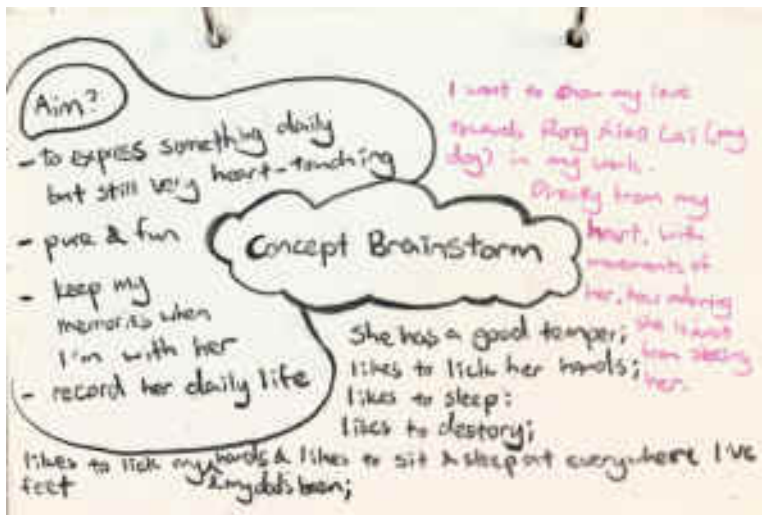 Aim?
- to express something daily
but still very heart-touching
- pure & fun
- keep my
memories when
I'm with her
- record her daily life
Concept Brainstorm
I want to show my love
towards Rong Xiao Lai (my
dog) in my work.
Directly from my
heart, with
movements of
her, how
she is
from seeing
her.
She has a good temper;
likes to lick her hands;
likes to sleep;
likes to destory;
likes to lick my hands & likes to sit & sleep at everywhere I've
feet & my dad's been;